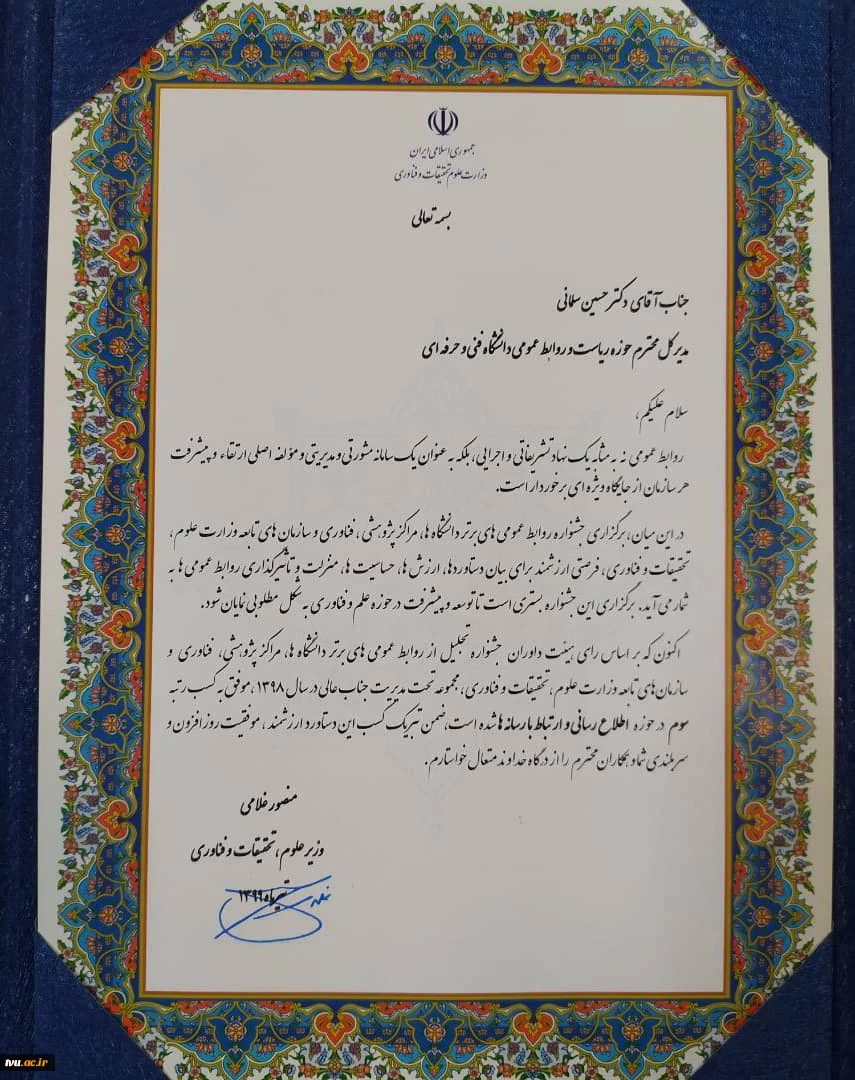 جمهوری اسلامی ایران
وزارت علوم تحقیقات و فناوری
بسمه تعالی
جناب آقای دکتر حسین سلمانی
مدیر کل محترم حوزه ریاست و روابط عمومی دانشگاه فنی و حرفه ای
سلام علیکم،
روابط عمومی نه به مثابه یک نهاد تشریفاتی و اجرایی، بلکه به عنوان یک سامانه مشورتی و مدیریتی و مؤلفه اصلی ارتقاء و پیشرفت
هر سازمان از جایگاه ویژه ای برخوردار است.
در این میان، برگزاری جشنواره روابط عمومی های برتر دانشگاه ها، مراکز پژوهشی، فناوری و سازمان های تابعه وزارت علوم،
تحقیقات و فناوری، فرصتی ارزشمند برای بیان دستاوردها، ارزش ها، حساسیت ها، منزلت و تأثیرگذاری روابط عمومی ها به
شمار می آید. برگزاری این جشنواره بستری است تا توسعه و پیشرفت در حوزه علم و فناوری به شکل مطلوبی نمایان شود.
اکنون که بر اساس رای هیئت داوران جشنواره تجلیل از روابط عمومی های برتر دانشگاه ها، مراکز پژوهشی، فناوری و
سازمان های تابعه وزارت علوم، تحقیقات و فناوری، مجموعه تحت مدیریت جناب عالی در سال ۱۳۹۸، موفق به کسب رتبه
سوم در حوزه اطلاع رسانی و ارتباط با رسانه ها شده است، ضمن تبریک کسب این دستاورد ارزشمند، موفقیت روز افزون و
سربلندی شما و همکاران محترم را از درگاه خداوند متعال خواستارم.
منصور غلامی
وزیر علوم، تحقیقات و فناوری
تیرماه ۱۳۹۹
tvu.ac.ir